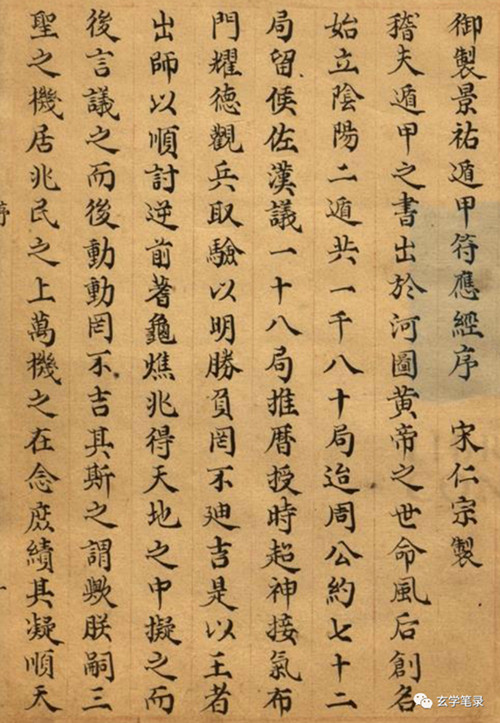 御製景祐遁甲符應經序　宋仁宗製
稽夫遁甲之書出於河圖黃帝之世命風后創名
始立陰陽二遁共一千八十局迨周公約七十二
局留侯佐漢議一十八局推曆授時超神接氣布
門耀德觀兵取驗以明勝負罔不廸吉是以王者
出師以順討逆前著龜燋兆得天地之中擬之而
後言議之而後動動罔不吉其斯之謂歟朕嗣三
聖之機居兆民之上萬機之在念庶績其凝順天
玄学笔录